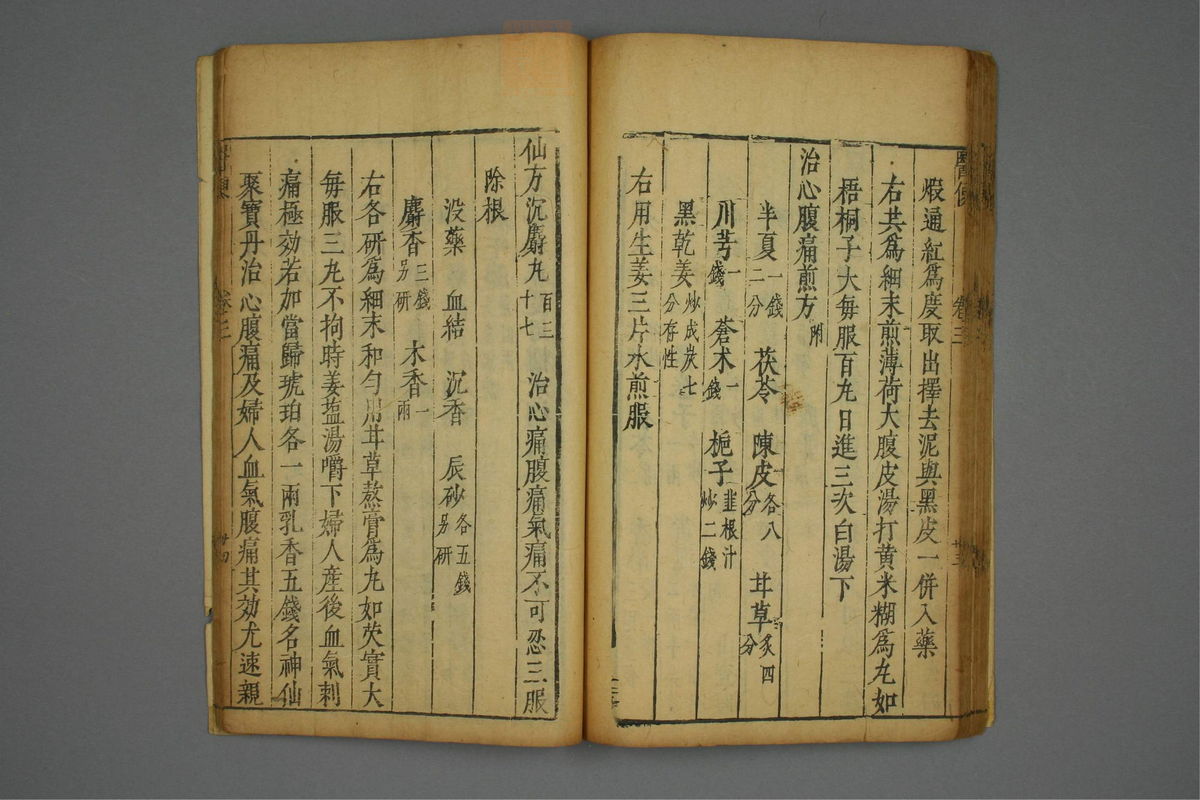 煅通紅爲度取出擇去泥與黑皮一併入藥
右共爲細末煎薄荷大腹皮湯打黄米糊爲丸如
梧桐子大每服百丸日進三次白湯下
治心腹痛煎方附
半夏一錢二分 茯苓 陳皮各八分 甘草炙四分
川芎一錢 蒼术一錢 梔子韭根汁炒二錢
黑乾姜炒成炭七分存性
右用生姜三片水煎服
卷三
仙方沉麝丸百三十七 治心痛腹痛氣痛不可忍三服
除根
没藥 血結 沉香 辰砂各五錢另研
麝香三錢另研 木香一兩
右各研爲細末和勻用甘草熬膏爲丸如芡實大
每服三丸不拘時姜塩湯嚼下婦人産後血氣刺
痛極効若加當歸琥珀各一兩乳香五錢名神仙
聚寶丹治心腹痛及婦人血氣腹痛其効尤速親
卷三
廿四